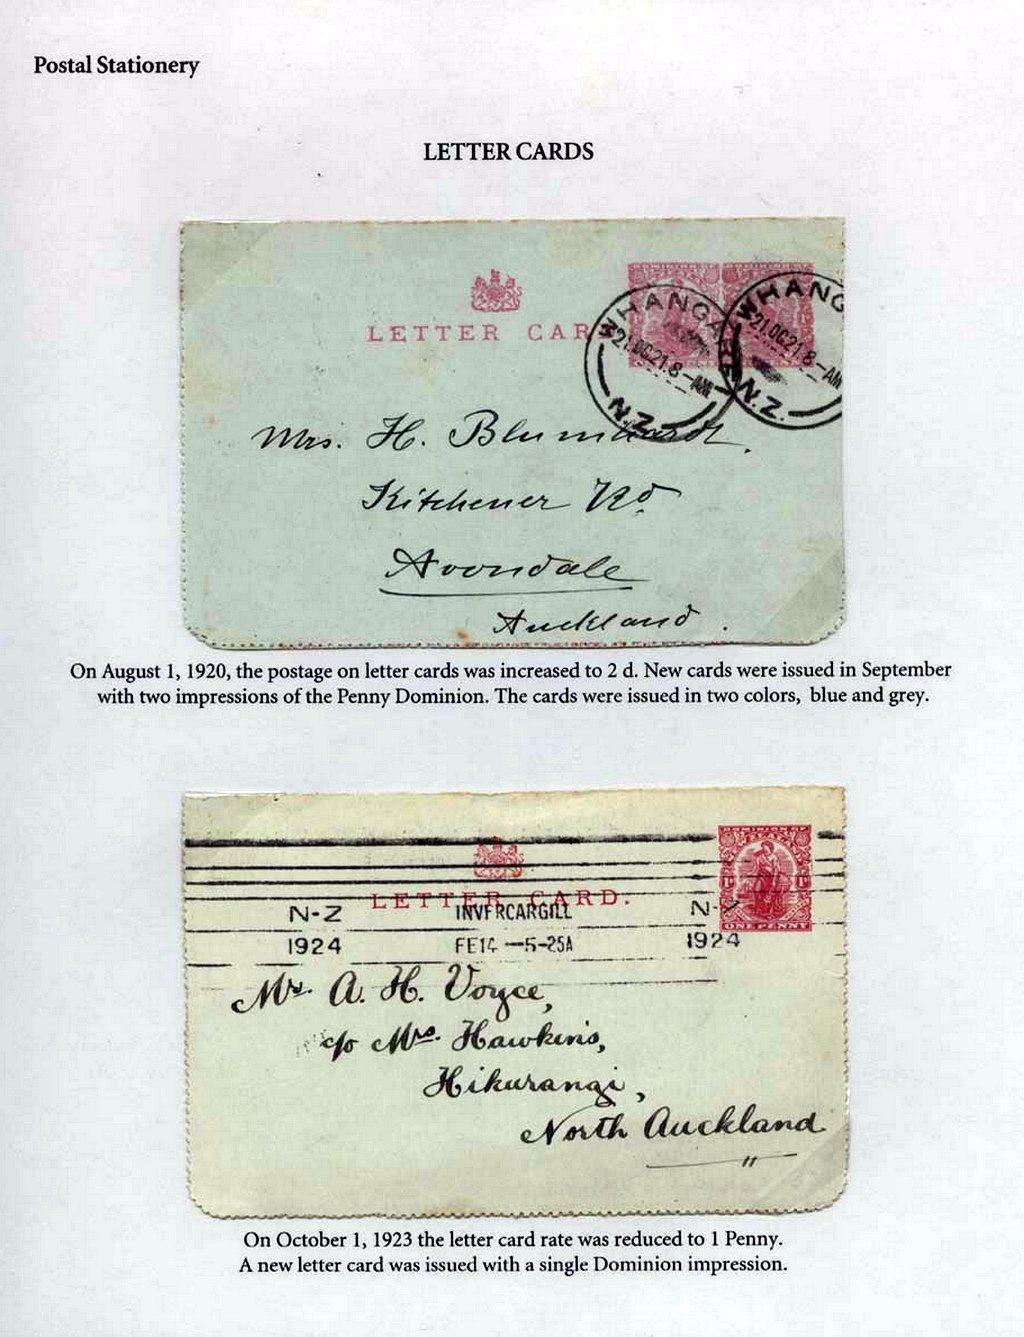 Postal Stationery
LETTER CARDS
LETTER CAR
WHANGAREI
21.OC21.8-AM
N.Z.
WHANG
21.OC21.8-AM
N.Z.
Mrs. H. Blumhardt.
Kitchener Rd
Avondale
Auckland.
On August 1, 1920, the postage on letter cards was increased to 2 d. New cards were issued in September
with two impressions of the Penny Dominion. The cards were issued in two colors, blue and grey.
DOMINION OF
ZEALAND
1D 1D
ONE PENNY
LETTER CARD.
N-Z INVERCARGILL N-Z
1924 FE14 —5-25A 1924
A. H. Voyce,
c/o Mrs. Hawkins,
Hikurangi,
North Auckland.
On October 1, 1923 the letter card rate was reduced to 1 Penny.
A new letter card was issued with a single Dominion impression.